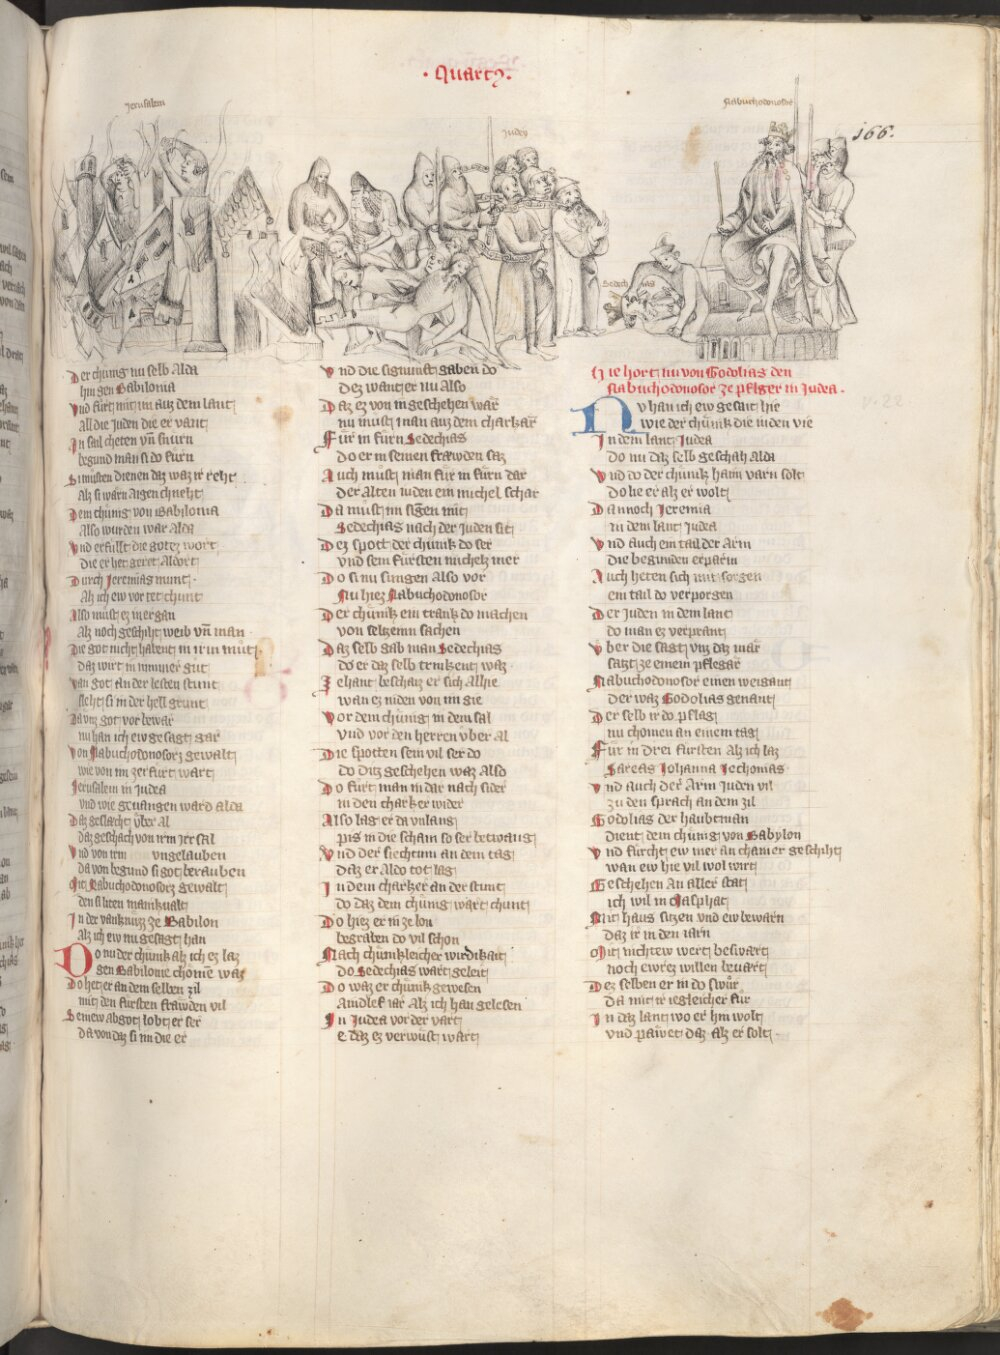 · Quart9 ·
Jerusalem
Judei
Nabuchodonosor
166.
Sedechias
Der chúnig nu selb Alda
hin gen Babilonia
Vnd fúrt mit im auz dem lant
All die Juden die er vant
In sail cheten vnd snúrn
begund man si do fúrn
Si musten dienen daz waz ir reht
Alz si wárn aigen chneht
Dem chúnig von Babilonia
Also wurden war Alda
Vnd erfullt die gotez wort
die er het geret Aldort
Durch Jeremias munt ·
Alz ich ew vor tet chunt
Also múst ez in ergan
Alz noch geschiht weib vnd man ·
Die got niht habent in irm mút
daz wirt in nimmer gut
Van got an der lesten stunt
sleht si in der hell grunt
Da vor got vor bewar
nu han ich ew gesagt gar
Von Nabuchodonosors gewalt
wie von im zerfúrt wart
Jerusalem in Judea
vnd wie geuangen ward alda
Daz geslacht vber al
daz geschach von irm
Vnd von irm vngelauben
da von begund si got berauben
Mit Nabuchodonosorz gewalt
den si liten manikualt
In der vanknúzz ze Babilon
Alz ich ew nu gesagt han
Do nu der chúnik alz ich ez laz
gen Babilonie chomen waz
Do het er an dem selben zil
mit den fúrsten frawden vil
Seinew abgot lobt er ser
da von daz si im die er
Vnd die signunft gaben do
Dez want er nu Also
Daz ez von in geschehen wár
nu must man auz dem charkár
Fúr in fúrn Sedechias
Do er in seinen frawden saz
Auch must man fúr in fúrn dar
der alten iuden ein michel schar
Da must im singen mit
Sedechias nach der Juden sit
Dez spott der chúnik do ser
vnd sein fúrsten michelz mer
Do si nu sungen Also vor
Nu hiez Nabuchodonosor
Der chúnik ein trank do machen
von seltzemn sachen
Daz selb gab man Sedechias
do er daz selb trinkent waz ·
Zehant beschaiz er sich Allhie
wan ez niden von im gie
Vor dem chúnig in dem sal
Vnd vor den herren vber al
Die spotten sein vil ser do
do ditz geschehen waz Also
Do fúrt man in dar nach sider
in den charker wider
Also lag er da vnlang
piz in die scham so ser betwang
Vnd der siechtum an dem tag
Daz er Aldo tot lag
In dem charker an der stunt
do daz dem chúnig wart chunt
Do hiez er in ze lon
begraben do vil schon
Nach chúnkleicher wirdikait
do Sedechias wart geleit
Do waz er chúnik gewesen
Aindlef iar Alz ich han gelesen
In Judea vor der vart
e daz ez verwúst wart
Hie hort nu von Godolias den
Nabuchodonosor ze pfleger in Judea ·
Nv han ich ew gesait hie
wie der chúnik die iuden vie
In dem lant Judea
Do nu daz selb geschah alda
Vnd do der chúnik haim varn solt
do lie er alz er wolt
Dannoch Jeremia
in dem lant Judea
Vnd auch ein tail der Arm
die begunden erparm
Auch heten sich mit sorgen
ein tail do verporgen
Der Juden in dem lant
do man ez verprant
Vber die sagt vns daz már
satzt ze einem pflegár
Nabuchodonosor einen weigant
der waz Godolias genant
Der selb ir do pflag
nu chomen an einem tag
Fúr in drei fúrsten Alz ich laz
Sareas Johanna Jechonias
Vnd auch der Arm Juden vil
zu den sprach an dem zil
Godolias der haubtman
Dient dem chúnig von Babylon
Vnd fúrcht ew mer an chainer geschiht
wan ew hie vil wol wirt
Geschehen An aller stat
ich wil in Masphat
Mit haus sitzen vnd ew bewarn
daz ir in den iarn
Mit nichtew wert beswart
noch ewrez willen bewart
Dez selben er in do swúr
Da mit ir iegleicher fúr
In daz lant wo er hin wolt
vnd pawet daz alz er solt ·